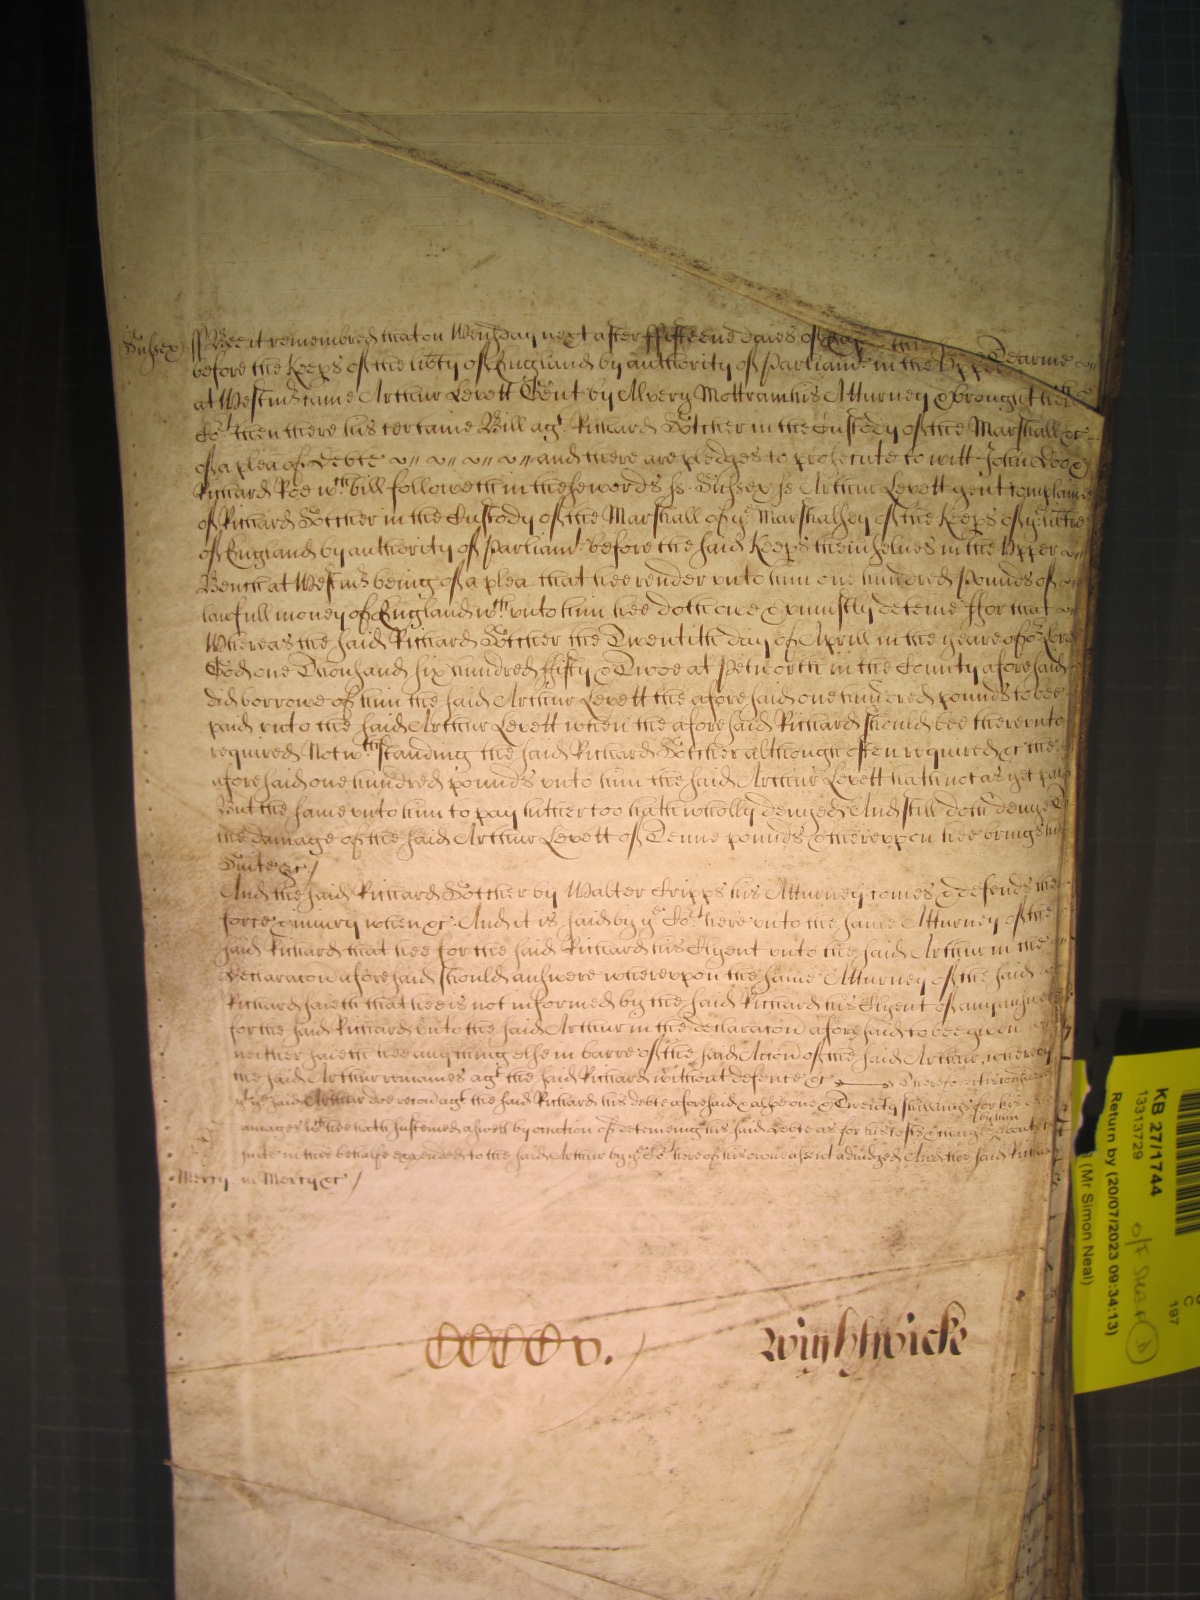 Sussex ss Bee it remembred that on Wensday next after fifteene daies of
before the Keeps of the libty of England by authority of Parliamt in the Upper
at Westmr came Arthur Levett Gent by Alvery Mottram his Atturney & brought here
Cort then there his certaine Bill agt Richard Botcher in the Custody of the Marshall &c
of a plea of Debte and there are pledges to prosecute to witt John Doo &
Richard Roe wch bill followeth in these words ss Sussex ss Arthur Levett gent complaines
of Richard Botcher in the Custody of the Marshall of ye Marshalsey of the Keeps of ye libtie
of England by authority of Parliamt before the said Keeps themselves in the Upper
Bench at Westmr being of a plea that hee render unto him one hundred Pounds of
lawfull money of England wch unto him hee doth owe & uniustly deteine ffor that
Whereas the said Richard Botcher the Twentith day of Aprill in the yeare of or Lord
God one Thousand six hundred fifty & Twoe at Petworth in the County aforesaid
did borrowe of him the said Arthur Levett the aforesaid one hundred pounds to bee
paid unto the said Arthur Levett when the aforesaid Richard should bee thereunto
required Notwthstanding the said Richard Botcher although often required &c the
aforesaid one hundred pounds unto him the said Arthur Levett hath not as yet paid
But the same unto him to pay hitherto hath wholly denyed And still doth denye To
the damage of the said Arthur Levett of Tenne pounds & thereupon hee brings his
Suite &c /
And the said Richard Botcher by Walter Cripps his Atturney comes & defends the
force & iniury when &c And it is said by ye Cort here unto the same Atturney of the
said Richard that hee for the said Richard his Clyent unto the said Arthur in the
Declaracon aforesaid should answere whereupon the same Atturney of the said
Richard saieth that hee is not informed by the said Richard his Clyent of any answere
for the said Richard unto the said Arthur in the declaracon aforesaid to bee given
neither saieth hee any thing else in barre of the said Accon of the said Arthur, whereby
the said Arthur remaines agt the said Richard without defence &c Therefore it is considered
yt ye said Arthur doe recov agt the said Richard his debte aforesaid & alsoe one & Twenty shillings for his
amages wch hee hath susteined aswell by occation of deteineing his said debte as for his costs & charges by him about
suite in this behalfe expended to the said Arthur by ye Cort here of his owne assent adiudged And the said Richard
Mercy in Mercy &c /
Wightwicke
KB 27/1744
13313729
Return by (20/07/2023 09:34:13)
(Mr Simon Neal)
C
197